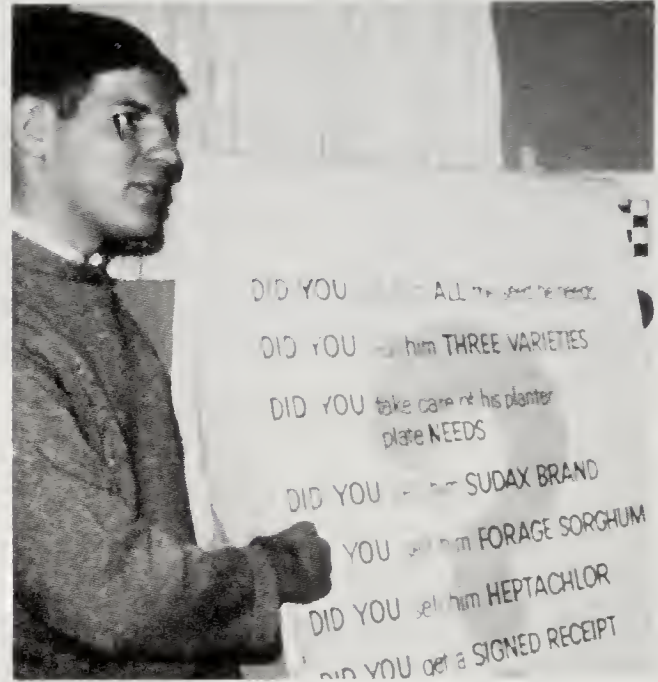 DID YOU ALL the seed he needs
DID YOU him THREE VARIETIES
DID YOU take care of his planter
plate NEEDS
DID YOU SUDAX BRAND
YOU sell him FORAGE SORGHUM
DID YOU sell him HEPTACHLOR
DID YOU get a SIGNED RECEIPT